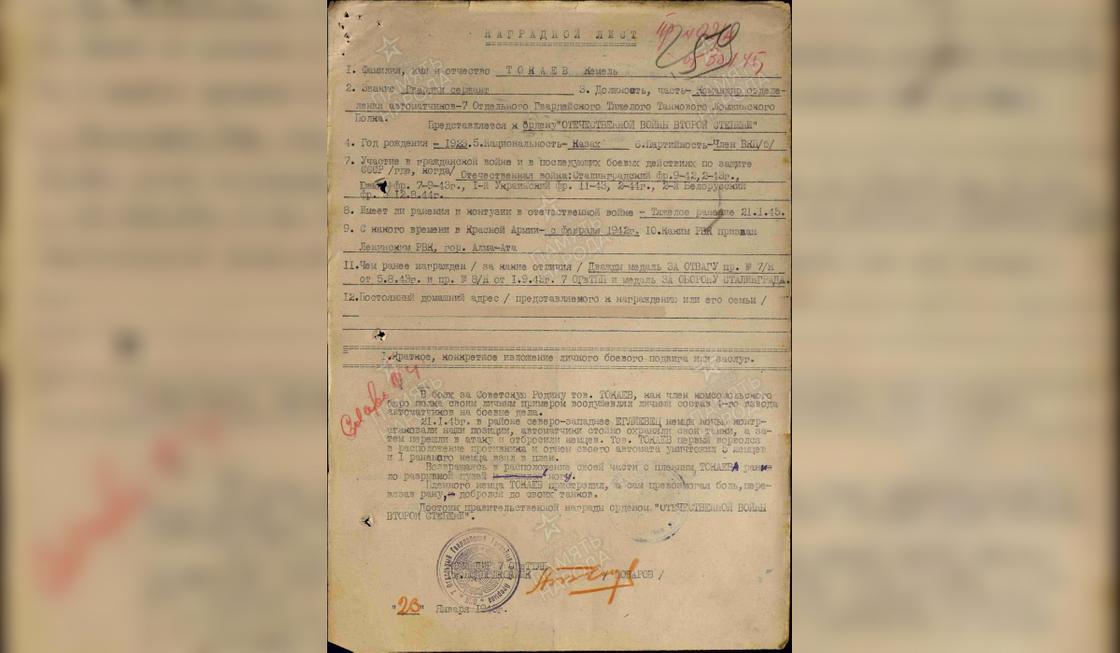 НАГРАДНОЙ ЛИСТ
259
1. Фамилия, имя и отчество ТОКАЕВ Кемель
2. Звание Гвардии сержант 3. Должность, часть- Командир отделе-
ления автоматчиков-7 Отдельного Гвардейского Тяжелого Танкового
Полка.
Представляется к ордену "ОТЕЧЕСТВЕННОЙ ВОЙНЫ ВТОРОЙ СТЕПЕНИ"
4. Год рождения - 1923. 5.Национальность- Казах 6.Партийность-Член ВКП/б/
7. Участие в гражданской войне и в последующих боевых действиях по защите
СССР /где, когда/ Отечественная война:Сталинградский фр.9-42,2-43г.,
фр. 7-9-43г., 1-й Украинский фр. 11-43, 2-44г., 2-й Белорусский
фр. 12.8.44г.
8. Имеет ли ранения и контузии в отечественной войне - Тяжелое ранение 21.1.45.
9. С какого времени в Красной Армии- с февраля 1942г. 10.Каким РВК призван
Ленинским РВК, гор. Алма-Ата
11.Чем ранее награжден / за какие отличия / Дважды медаль ЗА ОТВАГУ пр. № 7/н
от 5.8.43г. и пр. № 8/н от 1.9.43г. 7 ОГвТТП и медаль ЗА ОБОРОНУ СТАЛИНГРАДА.
12.Постоянный домашний адрес / представляемого к награждению или его семьи /
1.Краткое, конкретное изложение личного боевого подвига или заслуг.
В боях за Советскую Родину тов. ТОКАЕВ, как член комсомольского
бюро полка своим личным примером воодушевлял личный состав 4-го взвода
автоматчиков на боевые дела.
21.1.45г. в районе северо-западнее немцы ночью контр-
атаковали наши позиции, автоматчики стойко охраняли свои танки, а за-
тем перешли в атаку и отбросили немцев. Тов. ТОКАЕВ первый ворвался
в расположение противника и огнем своего автомата уничтожил 5 немцев
и 1 раненого немца взял в плен.
Возвращаясь в расположение своей части с пленным, ТОКАЕВА рани-
ло разрывной пулей ногу.
Пленного немца ТОКАЕВ пристрелил, а сам превозмогая боль,пере-
вязав рану, добрался до своих танков.
Достоин правительственной награды орденом "ОТЕЧЕСТВЕННОЙ ВОЙНЫ
ВТОРОЙ СТЕПЕНИ".
КОМАНДИР 7 ОГвТТП
"23" Января 1945г.
ПАМЯТЬ НАРОДА